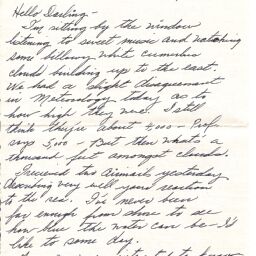 Hello Darling -
I'm sitting by the window
listening to sweet music and watching
some billowy white cumulus
clouds building up to the east.
We had a slight disagreement
in Meteorology today as to
how high they were. I still
think they're about 4,000 - Prof.
says 5,000 - But then what's a
thousand feet amongst clouds.
I received two Airmails yesterday
describing very well your reaction
to the sea. I've never been
far enough from shore to see
how blue the water can be - I'd
like to some day.